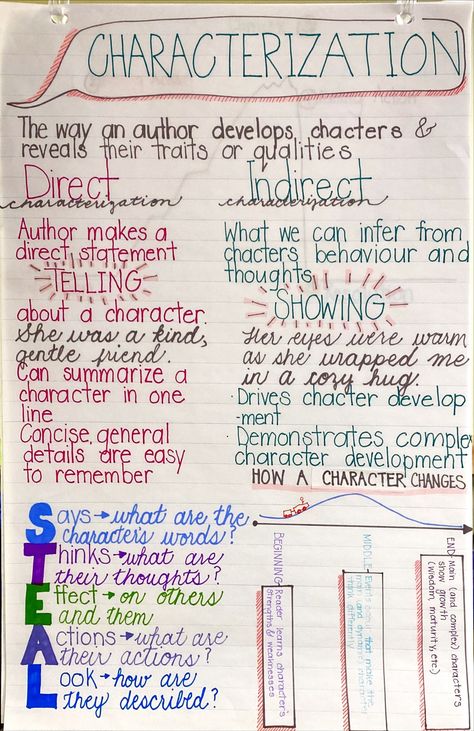 CHARACTERIZATION
The way an author develops, chacters &
reveals their traits or qualities
Direct
characterization
Author makes a
direct statement
TELLING
about a character.
She was a kind,
gentle friend.
Can summarize a
character in one
line
Concise, general
details are easy
to remember
Indirect
characterization
What we can infer from
chacters behaviour and
thoughts
SHOWING
Her eyes were warm
as she wrapped me
in a cozy hug.
· Drives chacter develop
-ment
· Demonstrates complex
character development
HOW A CHARACTER CHANGES
Says→what are the
character's words?
Thinks→what are
their thoughts?
Effect→on others
and them
Actions→what are
their actions?
Look→how are
they described?
BEGINNING: Reader learns character's
strengths & weaknesses
MIDDLE: Events occur that make the
main and dynamic character
think differently
END: Main (and complex) characters
show growth
(wisdom, maturity, etc.)